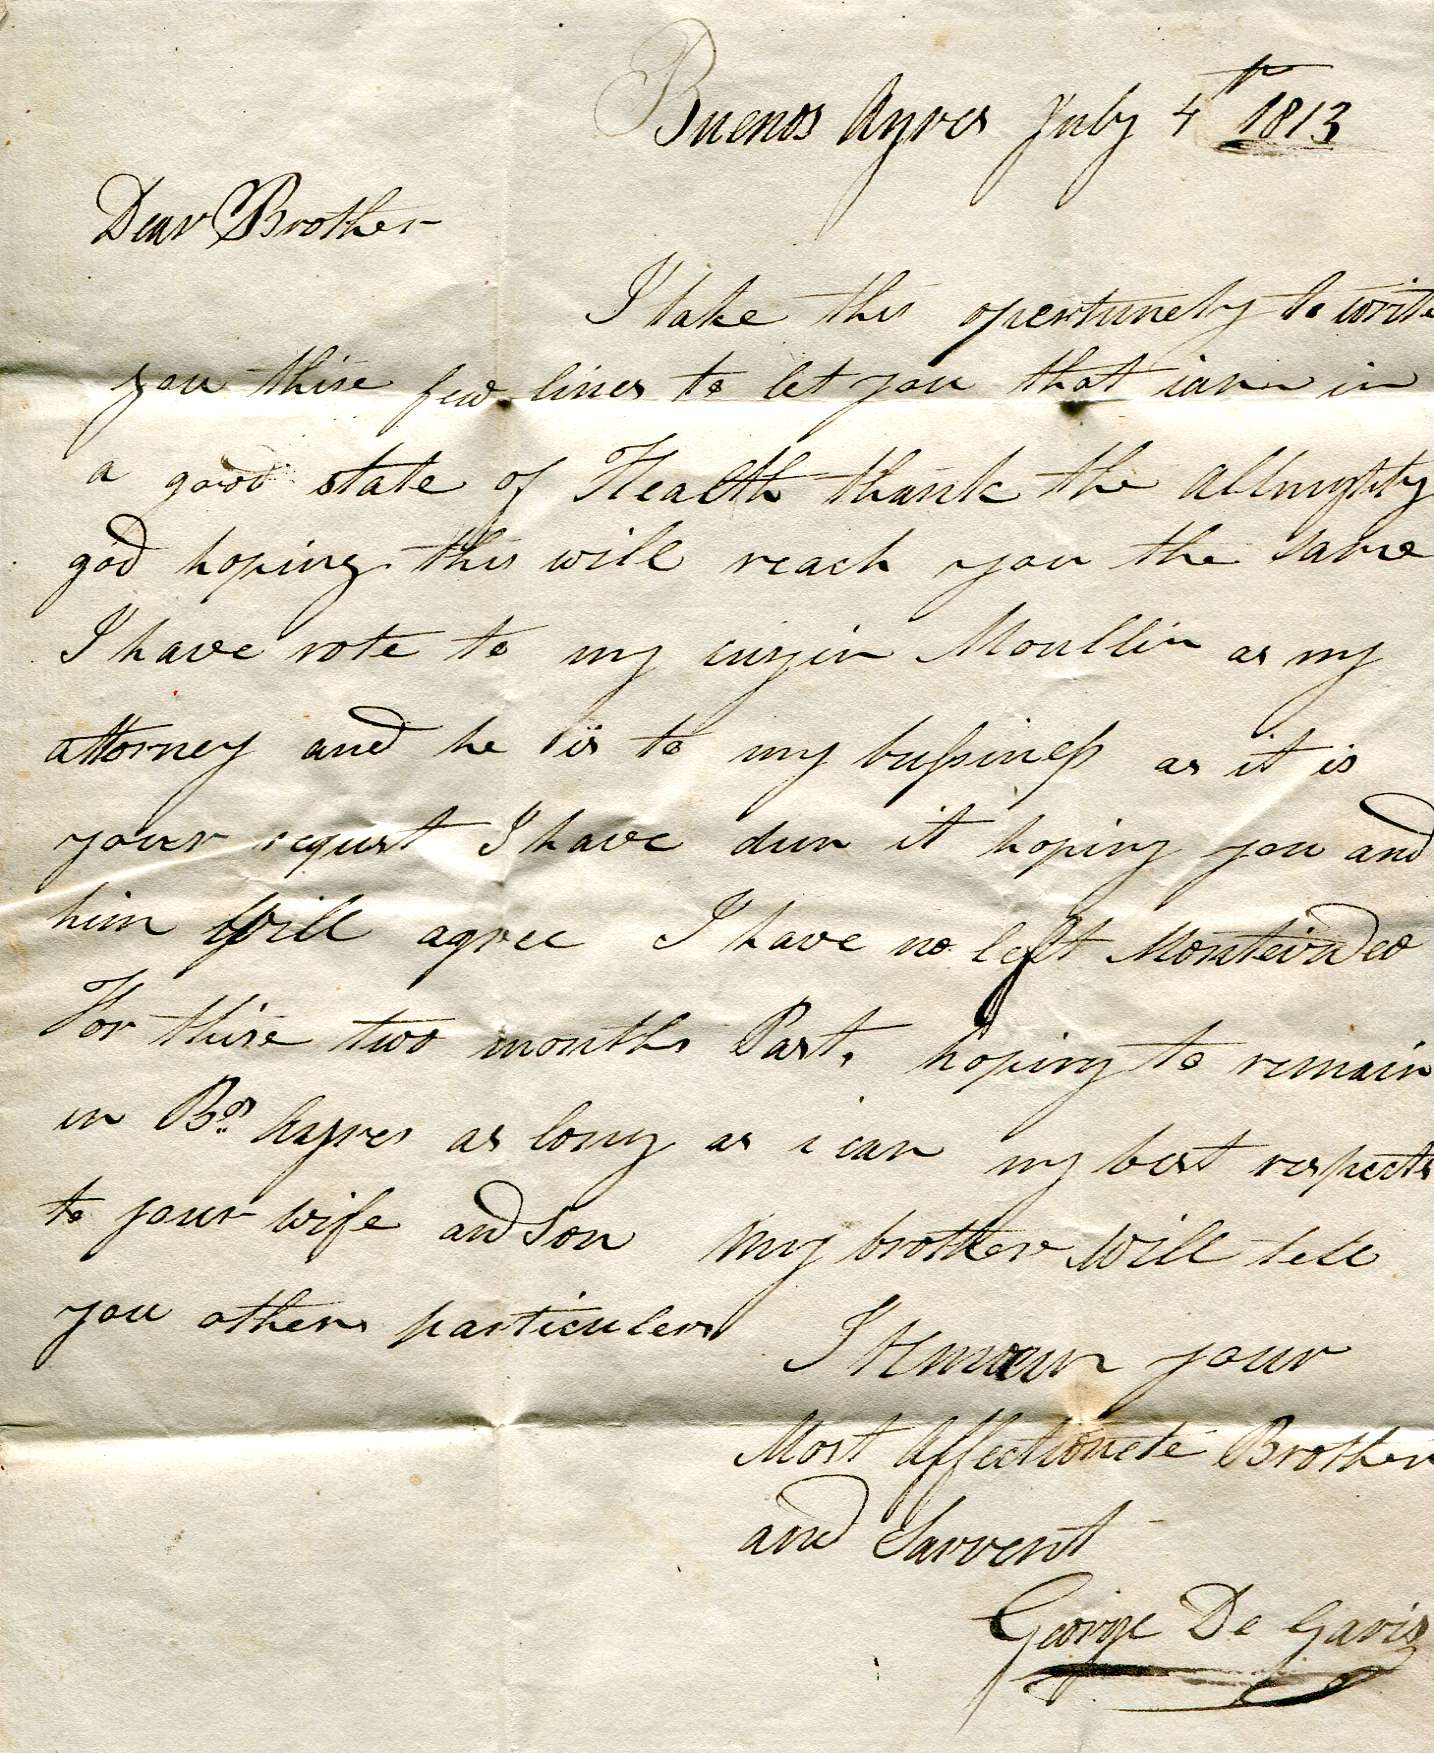 Buenos Ayres July 4th 1813
Dear Brother
I take this opertunety to write
you thise few lines to let you that iam in
a good state of Health thank the allmyhty
god hoping this will reach you the same
I have rote to my cuzin Moullin as my
attorney and he is to my bussiness as it is
your requst I have dun it hoping you and
him Will agree I have no left Monteivdeo
For thise two months Past, hoping to remain
in Bos Aayres as long as i can my best respects
to your wife and son My brother Will tell
you others particulers
I Remain your
Most Affectionete Brother
and Sarvent
George De Garis